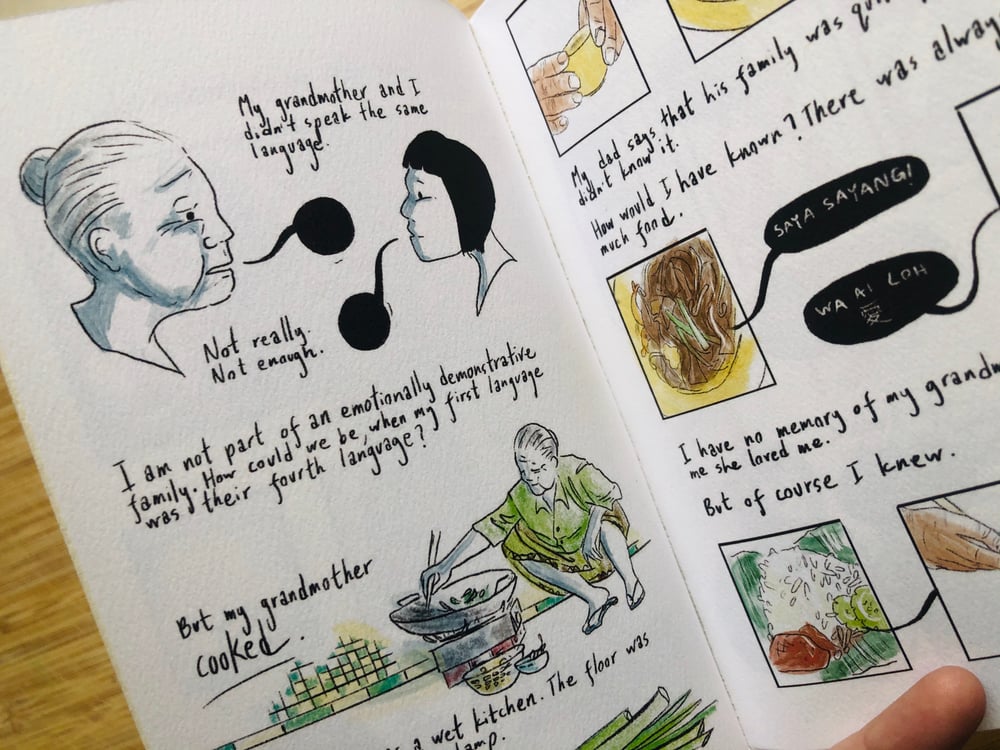 My grandmother and I
didn't speak the same
language.
Not really.
Not enough.
I am not part of an emotionally demonstrative
family. How could we be, when my first language
was their fourth language?
But my grandmother
cooked.
a wet kitchen. The floor was
My dad says that his family was
didn't know it.
How would I have known? There was always
much food.
SAYA SAYANG!
WA AI LOH
愛
I have no memory of my
me she loved me.
But of course I knew.